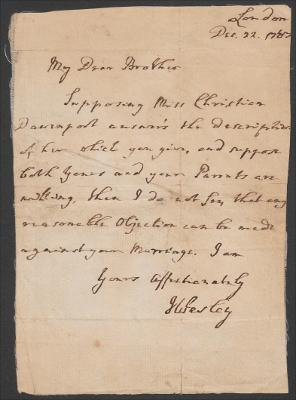 London
Dec. 22. 1782
My Dear Brother
Supposing Miss Christian
Davenport answers the description
of her which you give, and suppose
both hers and your Parents are
willing, then I do not see, that any
reasonable Objection can be made
against your Marriage. I am
Yours affectionately
JWesley